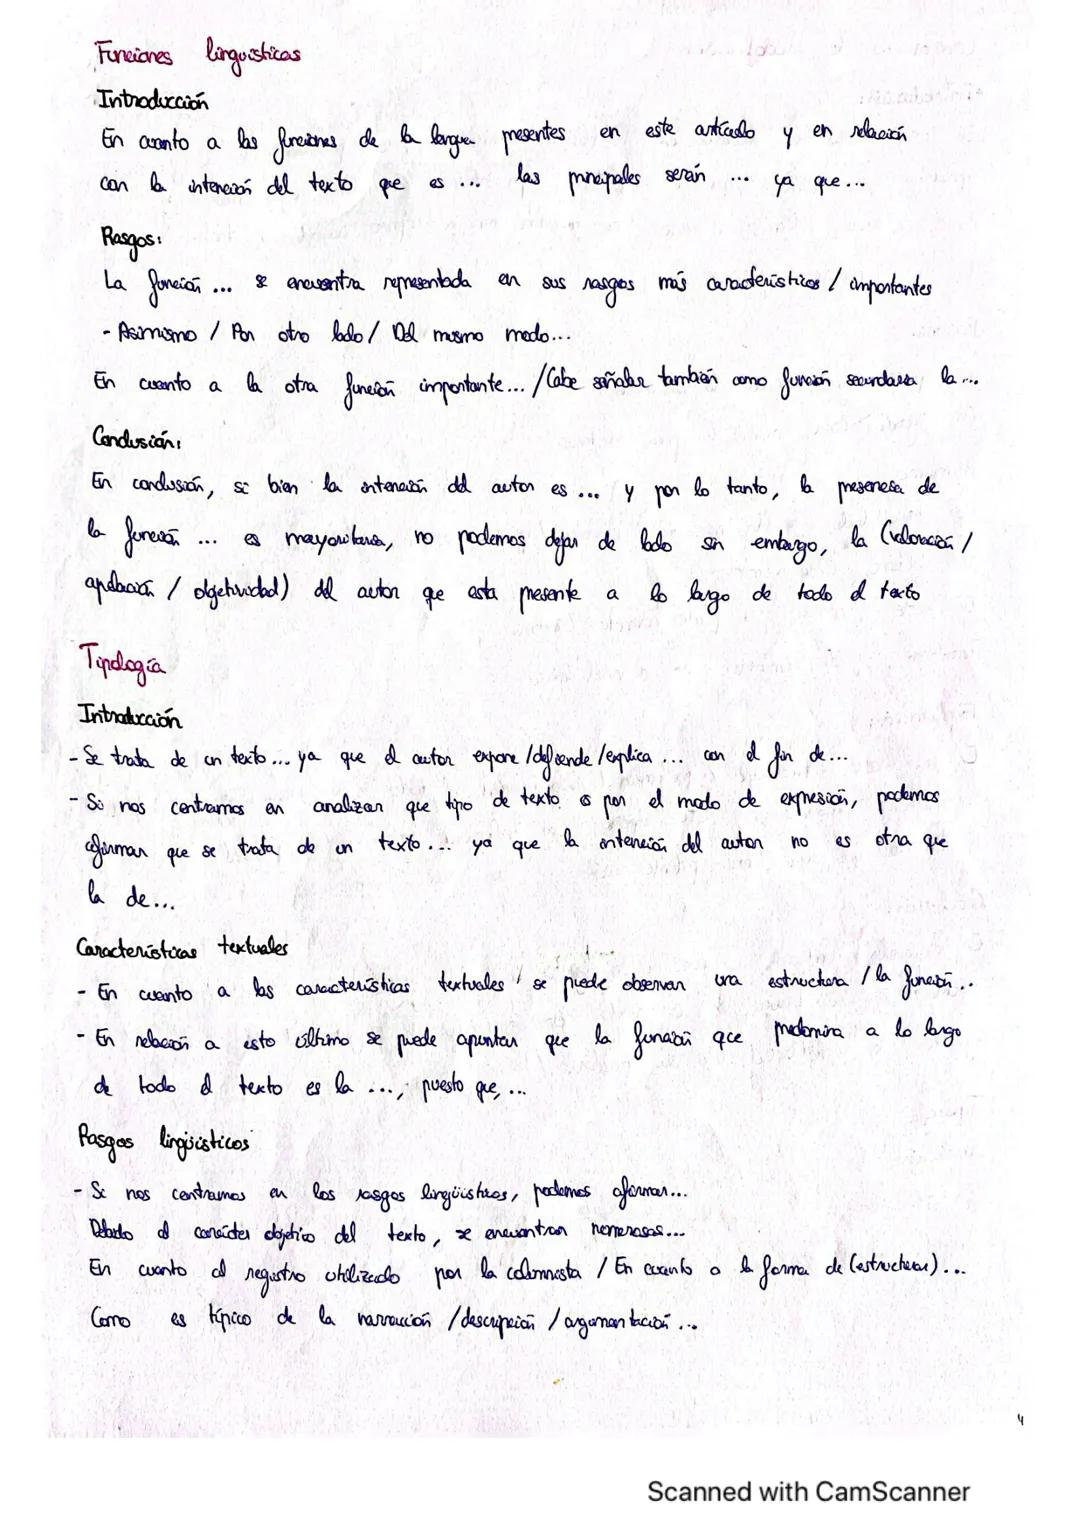 Funciones linguisticas
Introducción
En cuanto a las funciones de la lengua presentes en este artículo y en relación
con la intención del texto que es ... las principales serán ... ya que...
Rasgos:
La función ... se encuentra representada en sus rasgos más característicos / importantes
- Asimismo / Por otro lado / Del mismo modo...
En cuanto a la otra función importante... / Cabe señalar también como función secundaria la ...
Conclusión:
En conclusión, si bien la intención del autor es ... y por lo tanto, la presencia de
la función ... es mayoritaria, no podemos dejar de lado sin embargo, la (valoración /
apelación / objetividad) del autor que esta presente a lo largo de todo el texto
Tipología
Introducción
- Se trata de un texto... ya que el autor expone / defiende / explica ... con el fin de...
- Si nos centramos en analizar que tipo de texto es por el modo de expresión, podemos
afirmar que se trata de un texto... ya que la intención del autor no es otra que
la de...
Características textuales
- En cuanto a las características textuales se puede observar una estructura / la función ..
- En relación a esto último se puede apuntar que la función que predomina a lo largo
de todo el texto es la ..., puesto que, ...
Rasgos lingüísticos
- Si nos centramos en los rasgos lingüísticos, podemos afirmar...
Debido al carácter objetivo del texto, se encuentran numerosas...
En cuanto al registro utilizado por la columnista / En cuanto a la forma de (estructura) ...
Como es típico de la narración / descripción / argumentación ...
4
Scanned with CamScanner